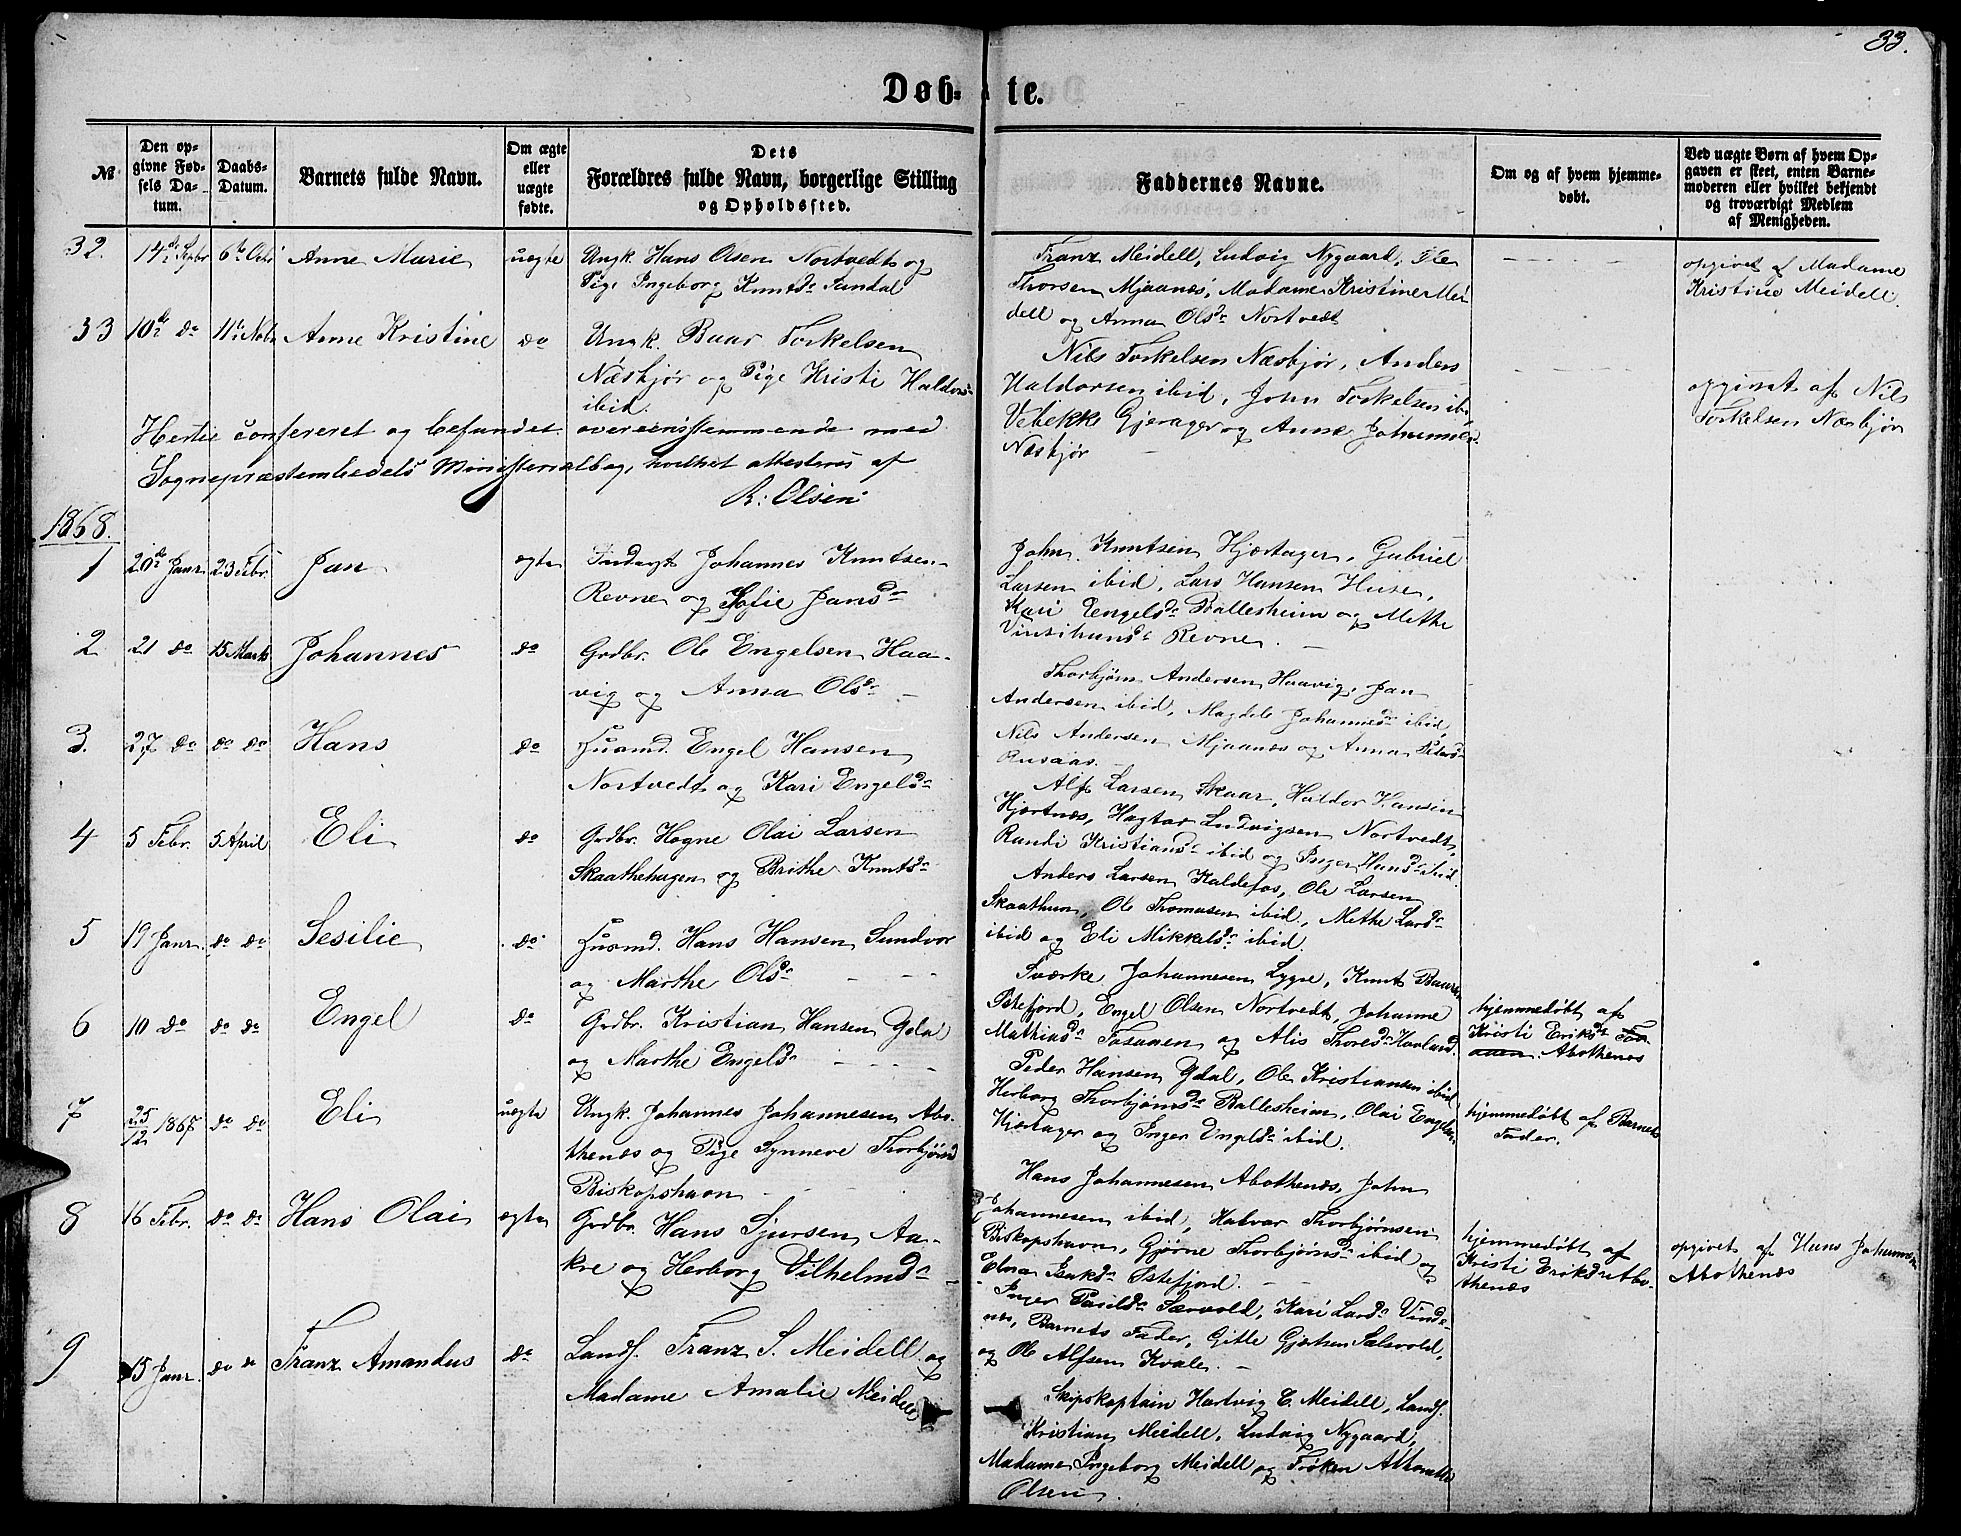 33.
Døb- te.
№
Den op-
givne Fød-
sels Da-
tum.
Daabs-
Datum.
Barnets fulde Navn.
Om ægte
eller
uægte
fødte.
Dets
Forældres fulde Navn, borgerlige Stilling
og Opholdssted.
Faddernes Navne.
Om og af hvem hjemme-
døbt.
Ved uægte Børn af hvem Op-
gaven er skeet, enten Barne-
moderen eller hvilket bekjendt
og troværdigt Medlem
af Menigheden.
32. 14de Septbr 6te Octr Anne Marie uægte Ungk. Hans Olsen Nortvedt og
Pige Ingeborg Kuntsdr Sandal
Franz Meidell, Ludvig Nygaard, Ole
Thorsen Mjaanæs, Madame Kristine Mei-
dell og Anna Olsdr Nortvedt
opgivet af Madame
Kristine Meidell.
33 10de do 11te Nobr Anne Kristine do Ungk. Baar Torkelsen
Næsbjør og Pige Kristi Haldors-
ibid.
Nils Torkelsen Næsbjør, Anders
Haldorsen ibid, John Torkelsen ib.
Vebekke Gjerager og Anne Johannesdr
Næsbjør
opgivet af Nils
Torkelsen Næsbjør
Hertil confereret og befundet overeensstemmende med
Sognepræstembedets Ministerialbog, hvilket attesteres af
R: Olsen
1868.
1 20de Janr 23 Febr. Jan ægte Inderst Johannes Knutsen
Revne og Sofie Jansdr
John Knutsen Hjærtager, Gabriel
Larsen ibid, Lars Hansen Huse,
Kari Engelsdr Ballesheim og Methe
Vinsihunsdr Revne.
2 21 do 15 Marts Johannes do Grdbr. Ole Engelsen Haa-
vig og Anna Olsdr
Thorbjørn Andersen Haavig, Jan
Andersen ibid, Magdele Johannesdr ibid,
Nils Andersen Mjaanæs og Anna Pedersdr
Rusaas.
3. 27 do do do Hans do Huusmd. Engel Hansen
Nortvedt og Kari Engelsdr
Alf Larsen Skaar, Haldor Hansen
Hjærtnæs, Hagtor Ludvigsen Nortvedt,
Randi Kristiansdr ibid og Inger Hansdr ibid.
4 5 Febr. 5 April Eli do Grdbr. Hogne Olai Larsen
Skaathehagen og Brithe Knutsdr
Anders Larsen Kaldefos, Ole Larsen
Skaathun, Ole Thomasen ibid., Methe Larsdr
ibid og Eli Mikkelsdr ibid.
5 19 Janr. do do Sesilie do Huusmd. Hans Hansen Sundvor
og Marthe Olsdr
Sværke Johannesen Lygre, Knut Baarsen
Istefjord, Engel Olsen Nortvedt, Johanne
Mathiasdr Fosaaen og Alis Thoresdr Havland.
6 10 do do do Engel do Grdbr. Kristian Hansen Ydal
og Marthe Engelsdr
Peder Hansen Ydal, Ole Kristiansen ibid
Herborg Thorbjørnsdr Ballesheim, Olai Engelsen
Hjertager og Inger Engelsdr ibid.
hjemmedøbt af
Kristi Eriksdr
Abothenæs
7 25/12 1867 do do Eli uægte Ungk. Johannes Johannesen Abo-
thenæs og Pige Synneve Thorbjørnsd
Biskopshavn
Hans Johannesen Abothenæs, John
Johannesen ibid, Halvar Thorbjørnsen
Biskopshavn, Gjørne Thorbjørnsdr ibid og
Elna Isaksdr Istefjord.
hjemmedøbt af Barnets
Fader.
8 16 Febr. do do Hans Olai ægte Grdbr. Hans Sjursen Aa-
kre og Herborg Vilhelmsdr
Inger Paulsdr Særvold, Kari Larsdr Vinde-
næs, Barnets Fader, Gitle Gjertsen Salsvold,
og Ole Alfsen Kvale.
hjemmedøbt af
Kristi Eriksdr Abo-
thenæs
opgivet af Hans Johannesen
Abothenæs
9 15 Janr. do do Franz Amandus do Landh. Franz S. Meidell og
Madame Amalie Meidell
Skipskaptain Hartvig C. Meidell, Landh.
Kristian Meidell, Ludvig Nygaard,
Madame Ingeborg Meidell og Frøken
Olsen